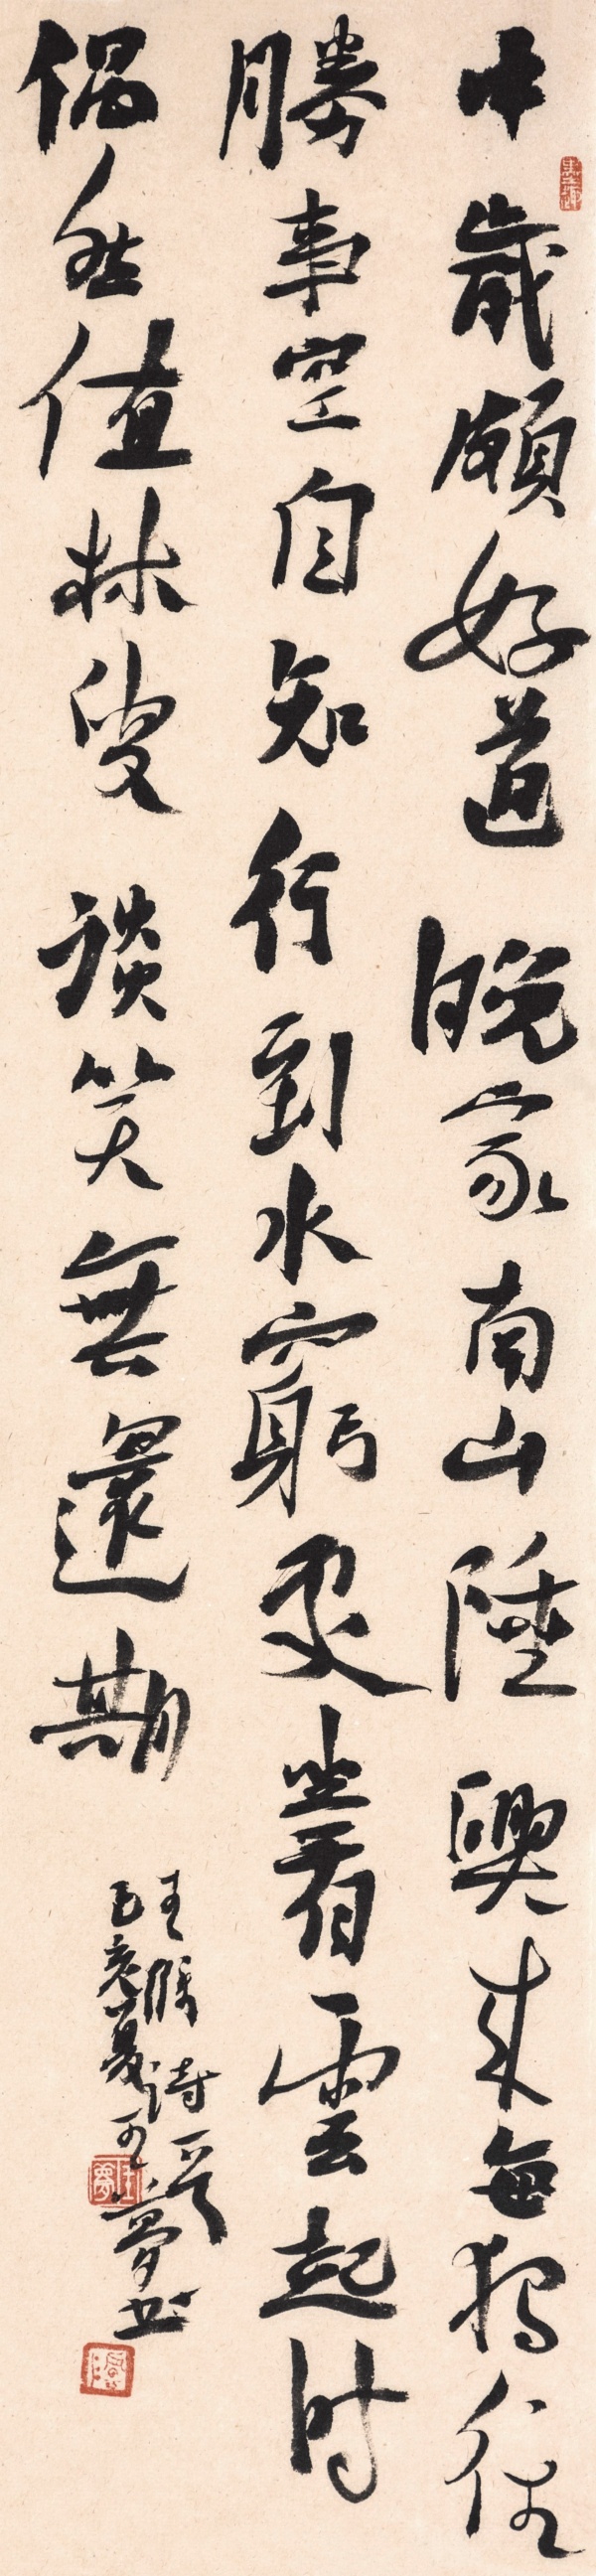 中歲頗好道晚家南山陲興來每獨往
勝事空自知行到水窮處坐看雲起時
偶然值林叟談笑無還期
王維詩一首
夏王夢書